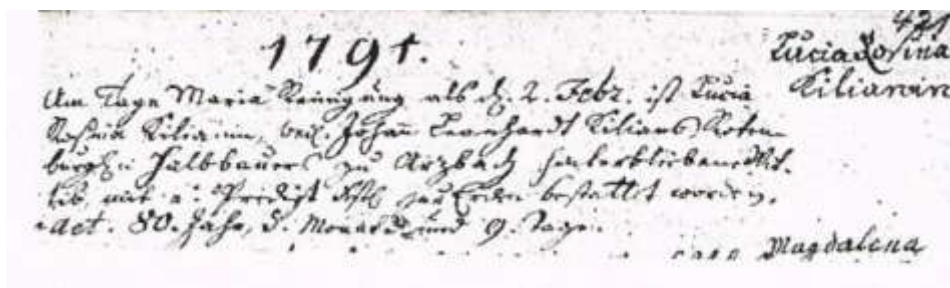 424
1791.
Lucia Rosina
Kilianin
Am Tage Mariä Reinigung als d. 2. Febr. ist Lucia
Rosina Kilianin, weil. Johann Leonhardt Kilians Roten-
burgh. Halbbauers zu Arzbach hinterbliebene Wit-
tib, mit e. Predigt zur Erden bestattet worden,
aet. 80. Jahr, 5. Monath und 9. Tage.
Magdalena